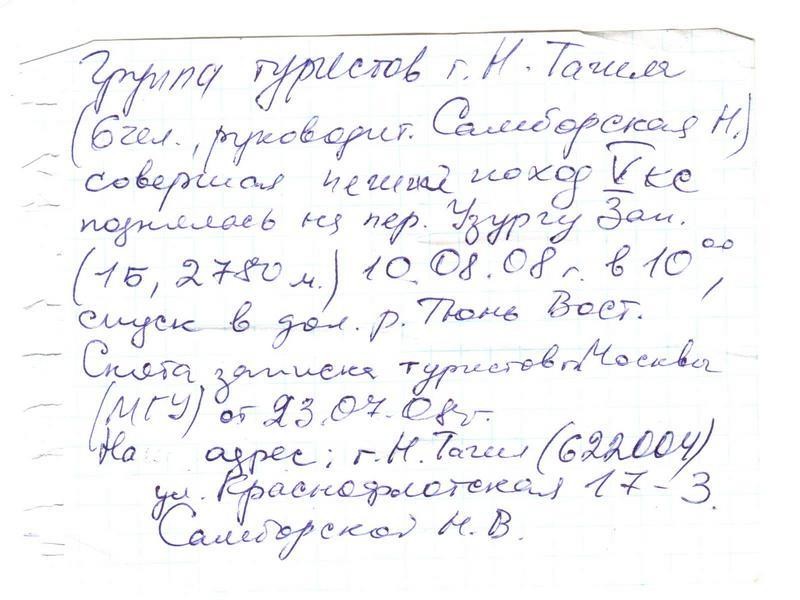 Группа туристов г. Н. Тагила
(6 чел., руководит. Самборская Н.)
совершая пеший поход V кс
поднялась на пер. Узургу Зап.
(1Б, 2780 м.) 10.08.08 г. в 10 00,
спуск в дол. р. Тюнь Вост.
Снята записка туристов г. Москвы
(МГУ) от 23.07.08 г.
На адрес: г. Н. Тагил (622004)
ул. Краснофлотская 17-3.
Самборской Н. В.